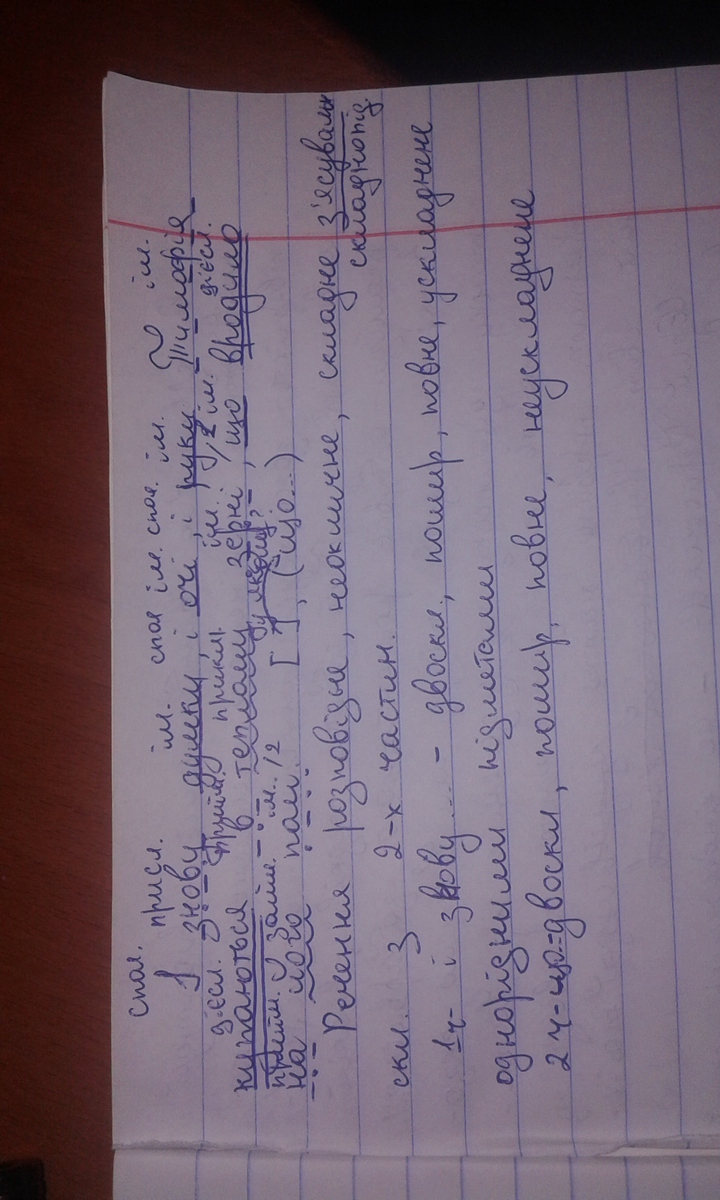 спол. присл. ім. спол ім. спол. ім. ім.
І знову думки і очі, і руки Тимофія
дієсл. прийм. прикм. ім. ім. дієсл.
купаються в теплому зерні, що вродило
прийм. займ. ім. /2
на його полі. [ ], (що...)
Речення розповідне, неокличне, складне з'ясувальн
складнопід
скл. з 2-х частин.
1ч- і знову... - двоскл., пошир, повне, ускладнене
однорідними підметами
2 ч-що-двоскл, пошир, повне, неускладнене